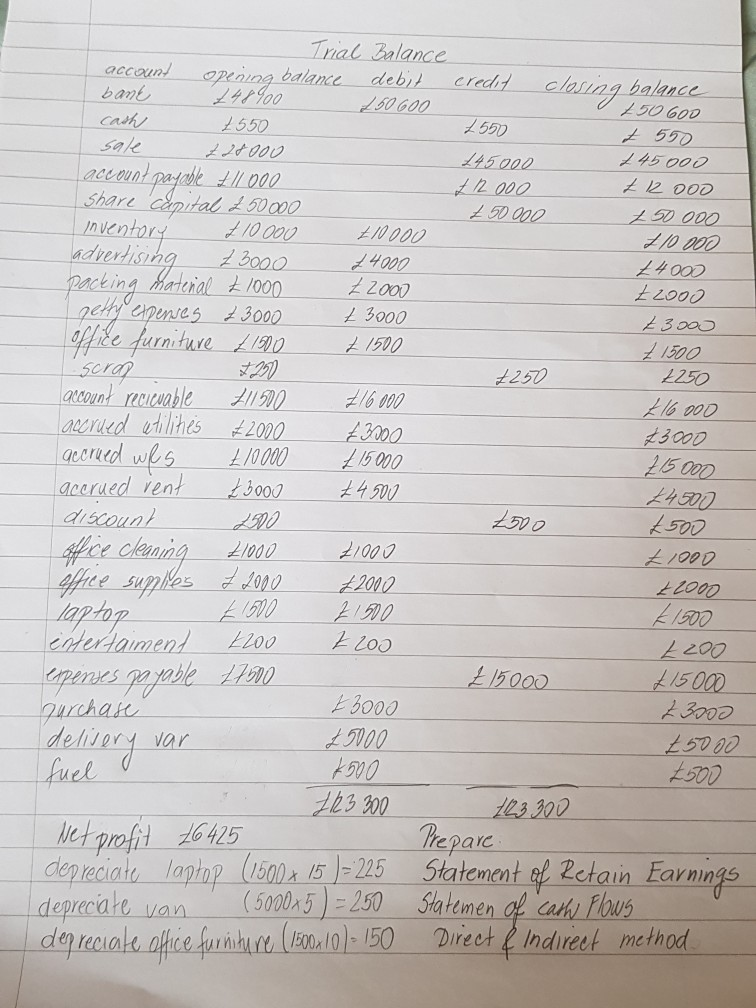 Trial Balance
account opening balance debit credit closing balance
bank £48900 £50600 £50600
cash £550 £550 £ 550
sale £28000 £45000 £45000
account payable £11000 £12000 £12000
share capital £50000 £50000 £50000
inventory £10000 £10000 £10000
advertising £3000 £4000 £4000
packing material £1000 £2000 £2000
petty expenses £3000 £3000 £3000
office furniture £1500 £1500 £1500
scrap £250 £250 £250
account recievable £11500 £16000 £16000
accrued utilities £2000 £3000 £3000
accrued £10000 £15000 £15000
accrued rent £3000 £4500 £4500
discount £500 £500 £500
office cleaning £1000 £1000 £1000
office supplies £2000 £2000 £2000
laptop £1500 £1500 £1500
entertaiment £200 £200 £200
expenses payable £7500 £15000 £15000
purchase £3000 £3000
delivery van £5000 £5000
fuel £500 £500
£123300 £123300
Net profit £6425 Prepare
depreciate laptop (1500x15)=225 Statement of Retain Earnings
depreciate van (5000x5)=250 Statemen of cash Flows
depreciate office furniture (1500x10)=150 Direct & Indirect method